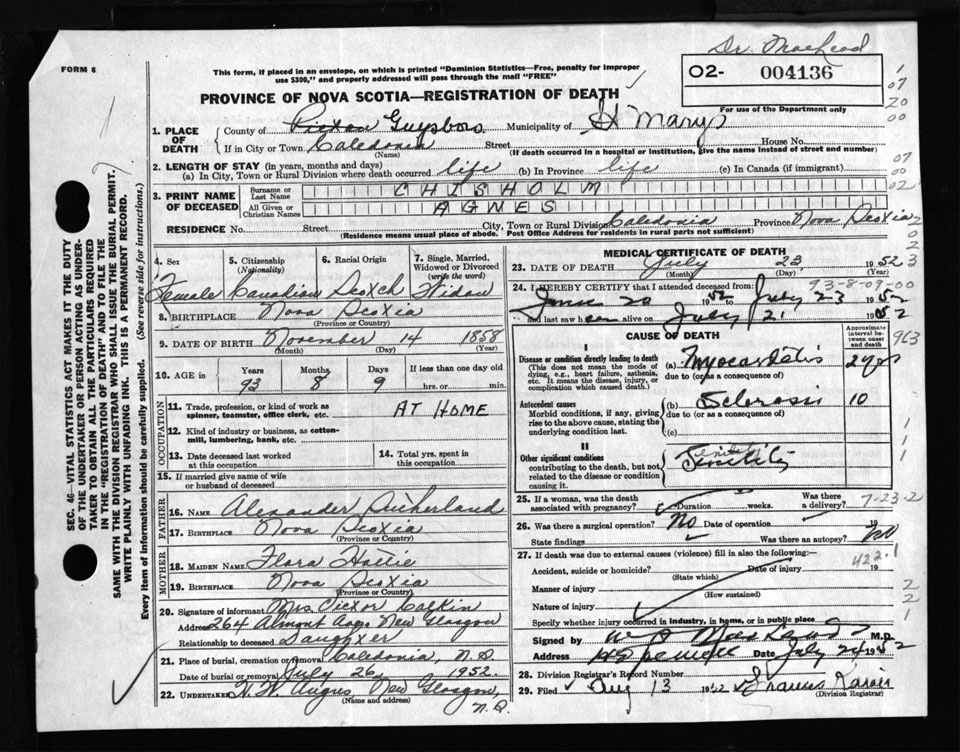 Dr. MacLeod
FORM 6
This form, if placed in an envelope, on which is printed "Dominion Statistics—Free, penalty for improper
use $300," and properly addressed will pass through the mail "FREE"
O2- 004136
For use of the Department only
PROVINCE OF NOVA SCOTIA—REGISTRATION OF DEATH
1. PLACE OF DEATH
County of Pictou Guysboro Municipality of St Marys
If in City or Town Caledonia Street House No.
(Name) (If death occurred in a hospital or institution, give the name instead of street and number)
2. LENGTH OF STAY (in years, months and days)
(a) In City, Town or Rural Division where death occurred life (b) In Province life (c) In Canada (if immigrant)
3. PRINT NAME OF DECEASED
Surname or Last Name CHISHOLM
All Given or Christian Names AGNES
RESIDENCE No. Street City, Town or Rural Division Caledonia Province Nova Scotia
(Residence means usual place of abode. Post Office Address for residents in rural parts not sufficient)
SEC. 46—VITAL STATISTICS ACT MAKES IT THE DUTY
OF THE UNDERTAKER OR PERSON ACTING AS UNDER-
TAKER TO OBTAIN ALL THE PARTICULARS REQUIRED
IN THE "REGISTRATION OF DEATH" AND TO FILE THE
SAME WITH THE DIVISION REGISTRAR WHO SHALL ISSUE THE BURIAL PERMIT.
WRITE PLAINLY WITH UNFADING INK. THIS IS A PERMANENT RECORD.
Every item of information should be carefully supplied. (See reverse side for instructions.)
4. Sex Female
5. Citizenship (Nationality) Canadian
6. Racial Origin Scotch
7. Single, Married, Widowed or Divorced (write the word) Widow
8. BIRTHPLACE Nova Scotia
(Province or Country)
9. DATE OF BIRTH November 14 1858
(Month) (Day) (Year)
10. AGE in Years 93 Months 8 Days 9 If less than one day old
hrs. or min.
OCCUPATION
11. Trade, profession, or kind of work as
spinner, teamster, office clerk, etc. AT HOME
12. Kind of industry or business, as cotton-
mill, lumbering, bank, etc.
13. Date deceased last worked
at this occupation
14. Total yrs. spent in
this occupation
15. If married give name of wife
or husband of deceased
FATHER
16. Name Alexander Sutherland
17. Birthplace Nova Scotia
(Province or Country)
MOTHER
18. MAIDEN NAME Flora Hattie
19. BIRTHPLACE Nova Scotia
(Province or Country)
20. Signature of informant Mrs Victor Calkin
Address 264 Almont Ave New Glasgow
Relationship to deceased Daughter
21. Place of burial, cremation or removal Caledonia, N.S.
Date of burial or removal July 26, 1952.
22. Undertaker H. W. Angus, New Glasgow,
(Name and address) N.S.
MEDICAL CERTIFICATE OF DEATH
23. DATE OF DEATH July 23 1952
(Month) (Day) (Year)
93-8-09-00
24. I HEREBY CERTIFY that I attended deceased from:
June 20 1952 to July 23 1952
and last saw h er alive on July 21 1952
CAUSE OF DEATH
Approximate interval between onset and death
I
Disease or condition directly leading to death
(This does not mean the mode of
dying, e.g., heart failure, asthenia,
etc. It means the disease, injury, or
complication which caused death.)
(a) Myocarditis 2 yrs
due to (or as a consequence of)
Antecedent causes
Morbid conditions, if any, giving
rise to the above cause, stating the
underlying condition last.
(b) Sclerosis 10
due to (or as a consequence of)
(c)
II
Other significant conditions
contributing to the death, but not
related to the disease or condition
causing it.
Senility
25. If a woman, was the death
associated with pregnancy? Duration weeks. Was there a delivery?
7-23-2
26. Was there a surgical operation? No Date of operation 19
State findings Was there an autopsy? no
27. If death was due to external causes (violence) fill in also the following:—
422.1
Accident, suicide or homicide? Date of injury 19
(State which)
Manner of injury
(How sustained)
Nature of injury
Specify whether injury occurred in industry, in home, or in public place
Signed by M.D.
Address Date July 24 1952
28. Division Registrar's Record Number
29. Filed Aug 13 1952 Francis
(Division Registrar)